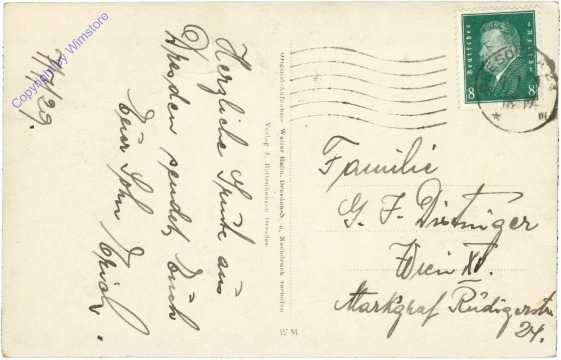 Herzliche Grüße aus
Dresden sendet Euch
Euer Sohn
7/4/29.
Copyright by Wimstore
Original-Aufnahme Walter Hahn, Dresden-N. 6, Nachdruck verboten
Verlag J. Bettenhausen Dresden
WM
Deutsches Reich
8 8
Familie
G. F. Dittinger
Wien XV.
Markgraf Rüdigerstr.
24.